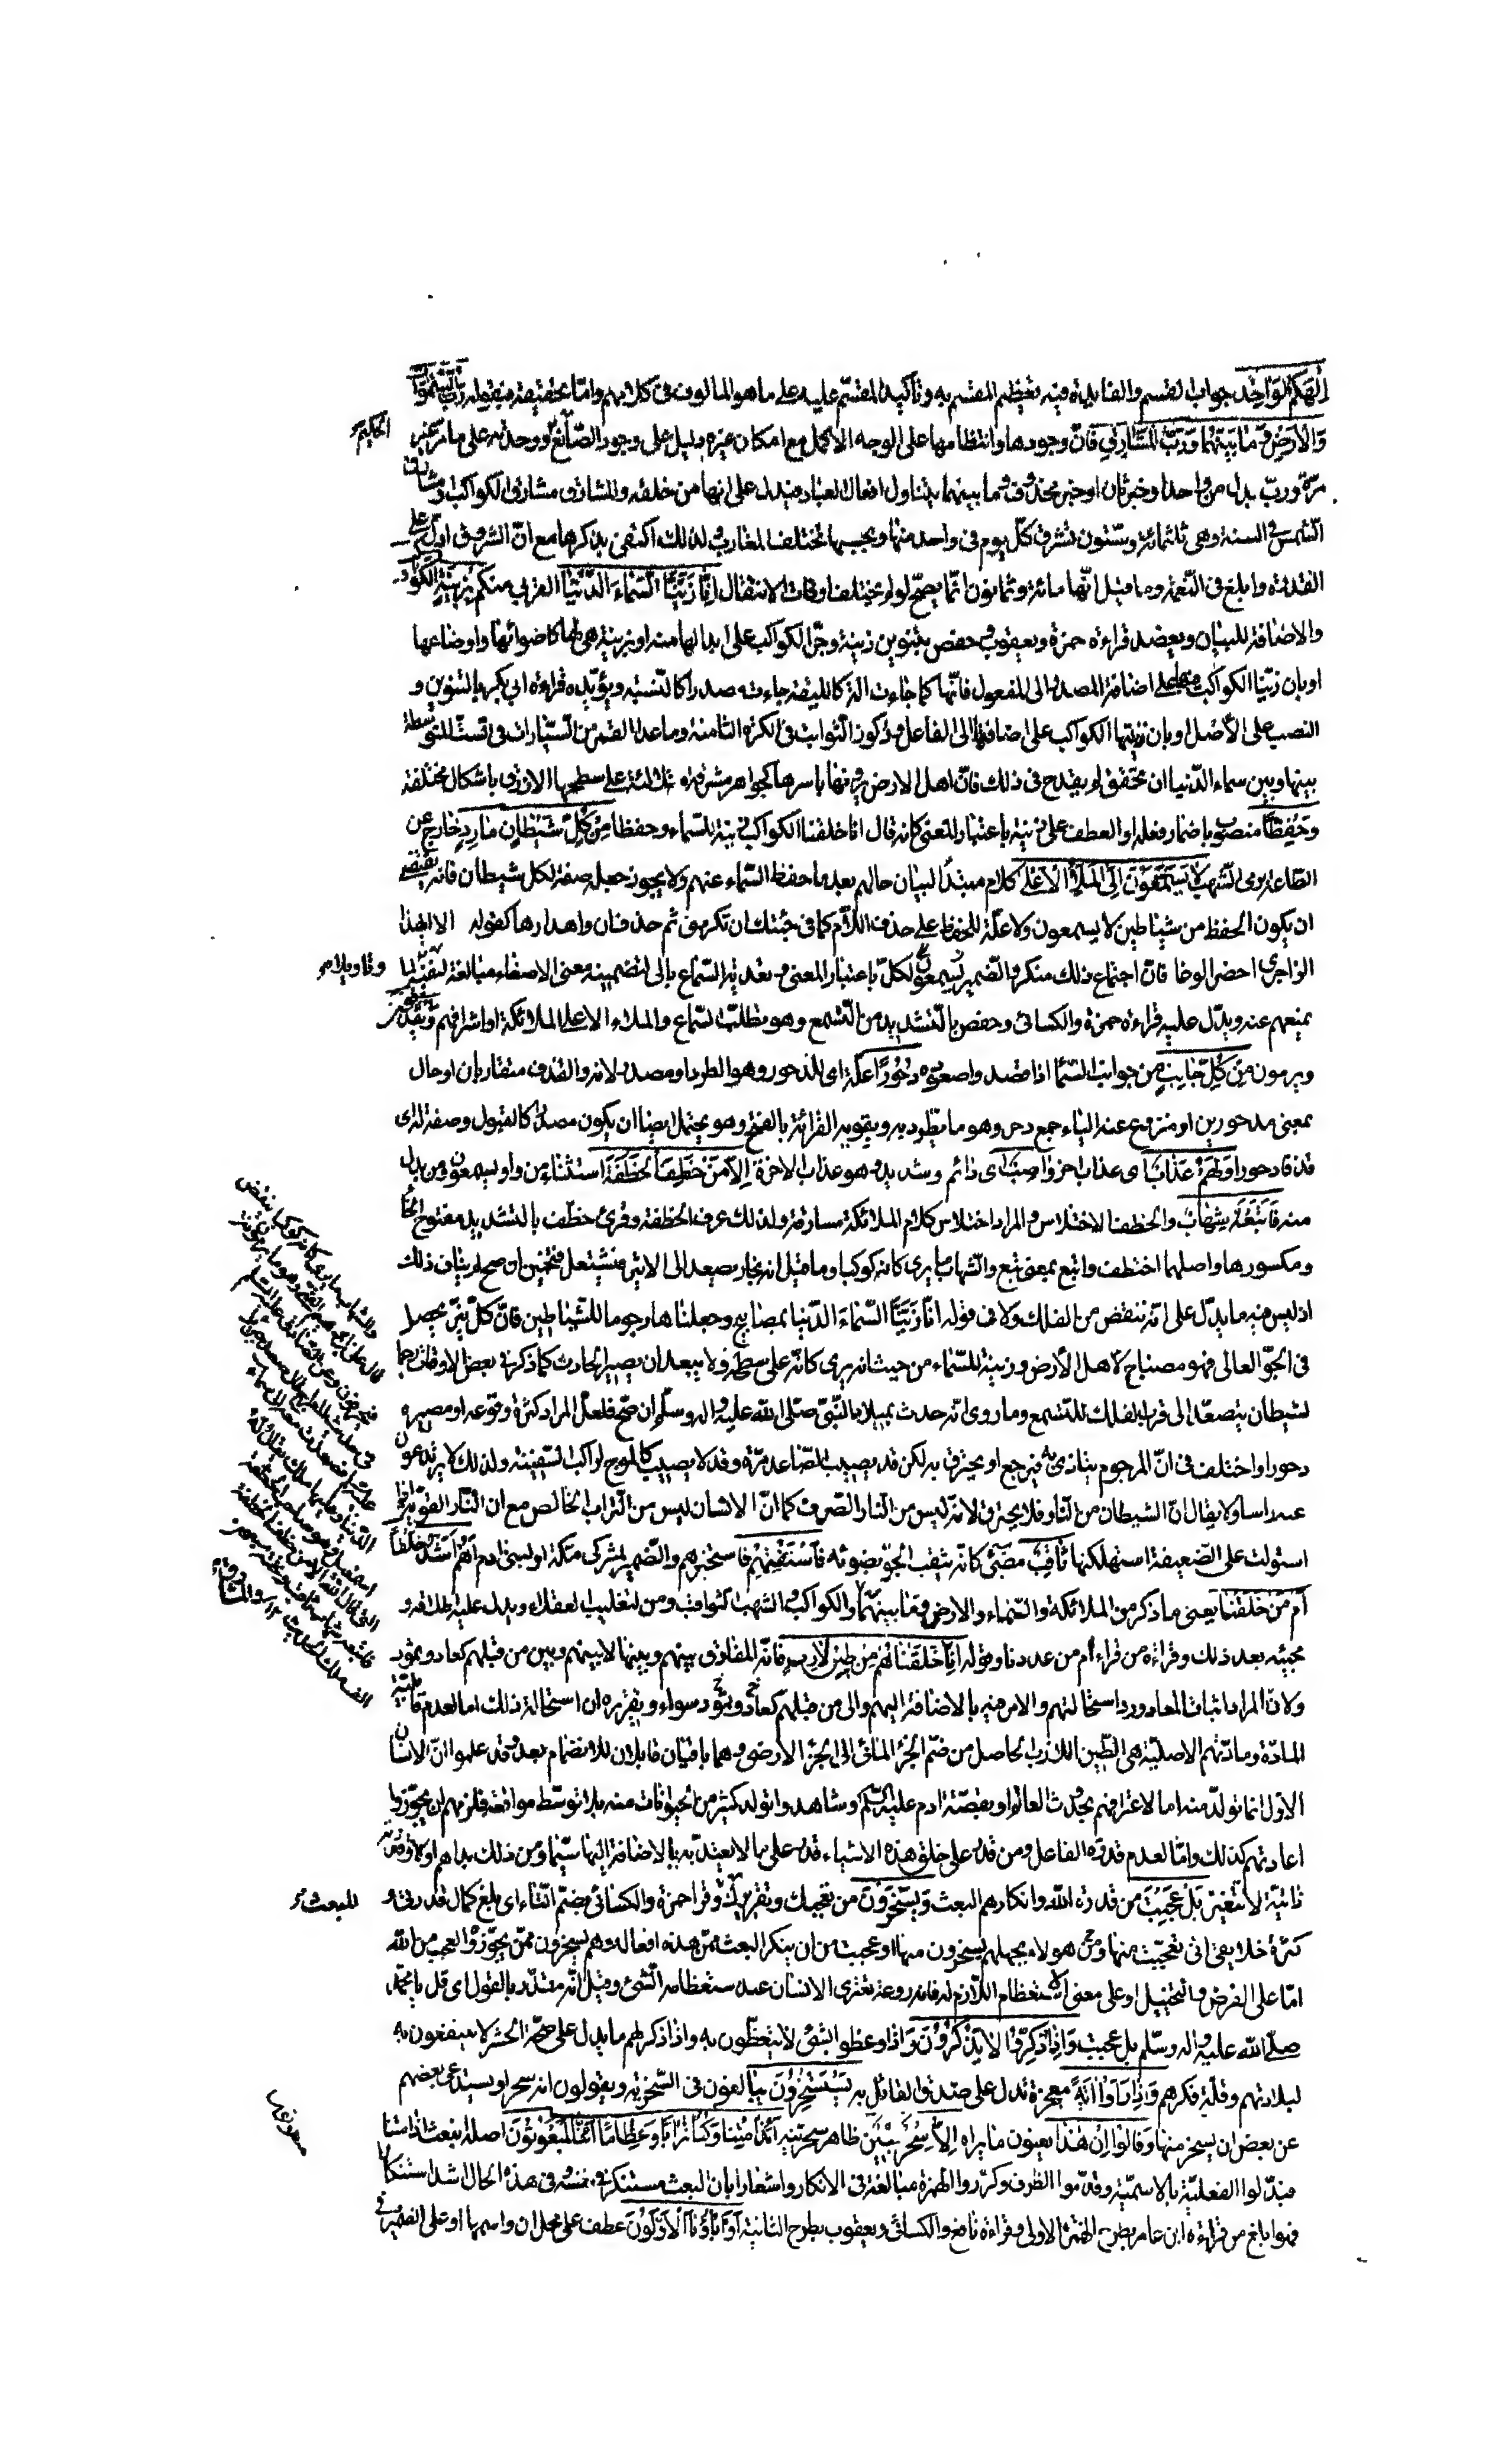 إِلٰهَكُمْ لَوَاحِدٌ جواب القسم والفايدة فيه تعظيم المقسم به وتأكيد المقسم عليه على ما هو المألوف في كلامهم وامّا تحقيقه فبقوله رَبُّ السَّمٰوَاتِ
وَالْاَرْضِ وَمَا بَيْنَهُمَا وَرَبُّ الْمَشَارِقِ فانّ وجودها وانتظامها على الوجه الاكمل مع امكان غيره دليل على وجود الصّانع ووحدته على ما مرّ غير
مرّة وربّ بدل من واحد او خبر ثان او خبر محذوف وما بينهما يتناول افعال العباد فيدل على انها من خلقه والمشارق مشارق الكواكب او مشارق
الشّمس في السنة وهي ثلثمائة وستّون تشرق كلّ يوم في واحد منها وبحسبها تختلف المغارب ولذلك اكتفى بذكرها مع انّ الشروق ادلّ على
القدرة وابلغ في النّعمة وما قيل انّها مائة وثمانون انّما يصحّ لو لم يختلف اوقات الانتقال اِنَّا زَيَّنَّا السَّمَاءَ الدُّنْيَا القربى منكم بِزِينَةٍ الْكَوَاكِبِ
والاضافة للبيان ويعضده قراءة حمزة ويعقوب وحفص بتنوين زينة وجرّ الكواكب على ابدالها منه او بزينة هي لها كاضوائها واوضاعها
او بان زيّنا الكواكب فيها على اضافة المصدر الى المفعول فانّها كما جاءت اسما كالليقة جاءت مصدرا كالنسبة ويؤيّده قراءة ابي بكر بالتنوين و
النصب على الأصل او بان زيّنتها الكواكب على اضافته الى الفاعل وركوز الثوابت في الكرة الثامنة وما عدا القمر من السيّارات في الستّ المتوسطة
بينها وبين سماء الدّنيا ان تحقق لم يقدح في ذلك فانّ اهل الارض يرونها باسرها كجواهر مشرقة متلألئة على سطحها الازرق باشكال مختلفة
وَحِفْظًا منصوب باضمار فعله او العطف على زينة باعتبار المعنى كانه قال انا خلقنا الكواكب زينة للسّماء وحفظا مِنْ كُلِّ شَيْطَانٍ مَارِدٍ خارج عن
الطاعة برمي الشهب لَا يَسَّمَّعُونَ اِلَى الْمَلَأِ الْاَعْلَى كلام مبتدأ لبيان حالهم بعد ما حفظ السّماء عنهم ولا يجوز جعله صفة لكل شيطان فانه يقتضي
ان يكون الحفظ من شياطين لا يسمعون ولا علّة للحفظ على حذف اللام كما في جئتك ان تكرمني ثم حذف ان واهدارها كقوله الا ايهذا
الزاجري احضر الوغا فانّ اجتماع ذلك منكر والضّمير لكلّ باعتبار المعنى وتعدية السّماع بالى لتضمينه معنى الاصغاء مبالغة لنفيه
يمنعهم عنه ويدلّ عليه قراءة حمزة والكسائي وحفص بالتشديد من التسمع وهو تطلّب السّماع والملاء الاعلى الملائكة او اشرافهم وَيُقْذَفُونَ
ويرمون مِنْ كُلِّ جَانِبٍ من جوانب السّماء اذا قصدوا صعوده دُحُورًا علّة اي للدحور وهو الطرد او مصدر لانه والقذف متقاربان او حال
بمعنى مدحورين او منزوع عنه الباء جمع دحر وهو ما يطرد به ويقويه القرائة بالفتح وهو يحتمل ايضا ان يكون مصدرا كالقبول وصفة له اي
قذفا دحورا وَلَهُمْ عَذَابٌ اي عذاب اخر وَاصِبٌ اي دائم او شديد وهو عذاب الاخرة اِلَّا مَنْ خَطِفَ الْخَطْفَةَ استثناء من واو يسمعون ومن بدل
منه فَاَتْبَعَهُ شِهَابٌ والخطف الاختلاس والمراد اختلاس كلام الملائكة مسارقة ولذلك عرف الخطفة وقرئ خطّف بالتشديد مفتوح الخا
ومكسورها واصلهما اختطف واتبع بمعنى تبع والشّهاب ما يرى كانه كوكبا وما قيل انه بخار يصعد الى الاثير فيشتعل فتخمين ان صح لم يناف ذلك
اذ ليس فيه ما يدلّ على انه ينقض من الفلك ولا في قوله انّا زيّنّا السّماء الدّنيا بمصابيح وجعلناها رجوما للشّياطين فانّ كلّ نيّر يحصل
في الجوّ العالي فهو مصباح لاهل الأرض وزينة للسّماء من حيث انه يرى كانّه على سطحه ولا يبعد ان يصير الحادث كما ذكر في بعض الاوقات رجما
لشيطان يتصعّد الى قرب الفلك للتسمع وما روي انه حدث بميلاد النّبيّ صلّى الله عليه واله وسلّم ان صحّ فلعلّ المراد كثرة وقوعه او مصيره
دحورا واختلف في انّ المرجوم يتاذى به فيرجع او يحترق به لكن قد يصيب الصّاعد مرّة وقد لا يصيب كالموج لراكب السّفينة ولذلك لا يرتدعون
عنه راسا ولا يقال انّ الشيطان من النّار فلا يحترق لانه ليس من النار الصّرف كما انّ الانسان ليس من التراب الخالص مع ان النّار القويّة اذا
استولت على الضّعيفة استهلكتها ثَاقِبٌ مضيئ كانّه يثقب الجوّ بضوئه فَاسْتَفْتِهِمْ فاستخبرهم والضّمير لمشركي مكّة او لبني ادم اَهُمْ اَشَدُّ خَلْقًا
اَمْ مَنْ خَلَقْنَا يعني ما ذكر من الملائكة والسّماء والارض وما بينهما والكواكب والشهب الثواقب ومن لتغليب العقلاء ويدل عليه اطلاقه و
مجيئه بعد ذلك وقراءة من قراء أم من عددنا وقوله اِنَّا خَلَقْنَاهُمْ مِنْ طِينٍ لَازِبٍ فانّه الفارق بينهم وبينها لا بينهم وبين من قبلهم كعاد وثمود
ولانّ المراد اثبات المعاد وردّ استحالتهم والامر فيه بالاضافة اليهم والى من قبلهم كعاد وثمود سواء وتقريره ان استحالة ذلك اما لعدم قابليّة
المادّة ومادّتهم الاصليّة هي الطّين اللازب الحاصل من ضمّ الجزء المائي الى الجزء الأرضي وهما باقيان قابلان للانضمام بعد وقد علموا انّ الانسان
الاول انما تولّد منه اما لاعترافهم بحدوث العالم او بقصّة ادم عليه السّلم وشاهدوا تولد كثير من الحيوانات منه بلا توسّط مواقعة فلزمهم ان يجوّزوا
اعادتهم كذلك وامّا لعدم قدرة الفاعل ومن قدر على خلق هذه الاشياء قدر على ما لا يعتدّ به بالاضافة اليها سيّما ومن ذلك بدأهم اولا وقدرته
ذاتيّة لا تتغيّر بَلْ عَجِبْتَ من قدرة الله وانكارهم البعث وَيَسْخَرُونَ من تعجبك وتقريرك وقرا حمزة والكسائي بضمّ التّاء اي بلغ كمال قدرتي و
كثرة خلايقي انّي تعجّبت منها وهولاء بجهلهم يسخرون منها او عجبت من ان ينكر البعث ممّن هذه افعاله وهم يسخرون ممّن يجوّزه والعجب من الله
امّا على الفرض والتخييل او على معنى الاستعظام اللّازم له فانه روعة تعتري الانسان عند استعظامه الشّئ وقيل انّه مقدّر بالقول اي قل يا محمّد
صلّى الله عليه واله وسلّم بل عجبت وَاِذَا ذُكِّرُوا لَا يَذْكُرُونَ واذا وعظوا بشئ لا يتعظون به واذا ذكر لهم ما يدل على صحّة الحشر لا ينتفعون به
لبلادتهم وقلّة فكرهم وَاِذَا رَاَوْا اٰيَةً معجزة تدل على صدق القائل به يَسْتَسْخِرُونَ يبالغون في السّخرية ويقولون انه سحر او يستدعي بعضهم
عن بعض ان يسخر منها وَقَالُوا اِنْ هٰذَا يعنون ما يراه اِلَّا سِحْرٌ مُبِينٌ ظاهر سحريته اَئِذَا مِتْنَا وَكُنَّا تُرَابًا وَعِظَامًا اَئِنَّا لَمَبْعُوثُونَ اصله انبعث اذا متنا
فبدّلوا الفعليّة بالاسميّة وقدّموا الظرف وكرّروا الهمزة مبالغة في الانكار واشعارا بان البعث مستنكر في نفسه وفي هذه الحال اشد استنكارا
فهو ابلغ من قراءة ابن عامر بطرح الهمزة الاولى وقراءة نافع والكسائي ويعقوب بطرح الثانية اَوَاٰبَاؤُنَا الْاَوَّلُونَ عطف على محل ان واسمها او على الضمير في
الحكيم
للبعث
مبعوثون